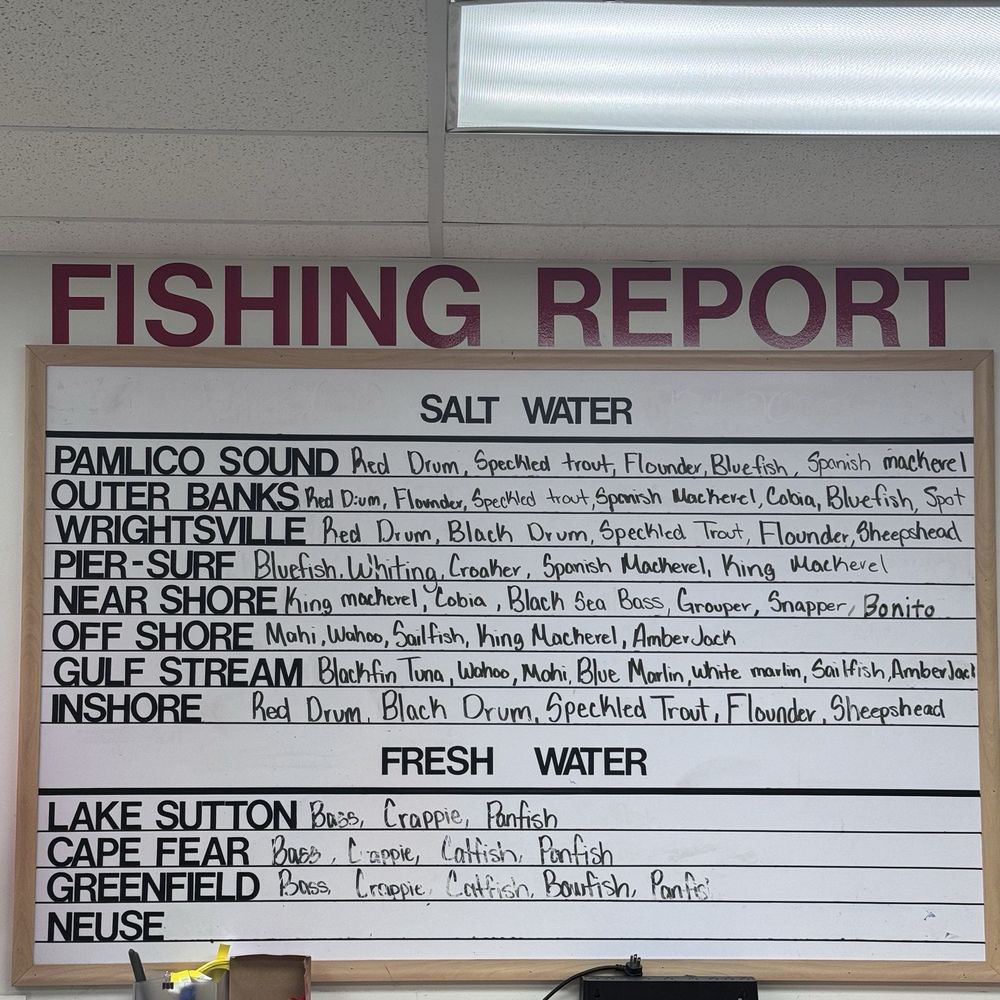 FISHING REPORT
SALT WATER
PAMLICO SOUND Red Drum, Speckled trout, Flounder, Bluefish, Spanish mackerel
OUTER BANKS Red Drum, Flounder, Speckled trout, Spanish Mackerel, Cobia, Bluefish, Spot
WRIGHTSVILLE Red Drum, Black Drum, Speckled Trout, Flounder, Sheepshead
PIER-SURF Bluefish, Whiting, Croaker, Spanish Mackerel, King Mackerel
NEAR SHORE King mackerel, Cobia, Black Sea Bass, Grouper, Snapper, Bonito
OFF SHORE Mahi, Wahoo, Sailfish, King Mackerel, AmberJack
GULF STREAM Blackfin Tuna, Wahoo, Mahi, Blue Marlin, white marlin, Sailfish, AmberJack
INSHORE Red Drum, Black Drum, Speckled Trout, Flounder, Sheepshead
FRESH WATER
LAKE SUTTON Bass, Crappie, Panfish
CAPE FEAR Bass, Crappie, Catfish, Panfish
GREENFIELD Bass, Crappie, Catfish, Bowfish, Panfis
NEUSE